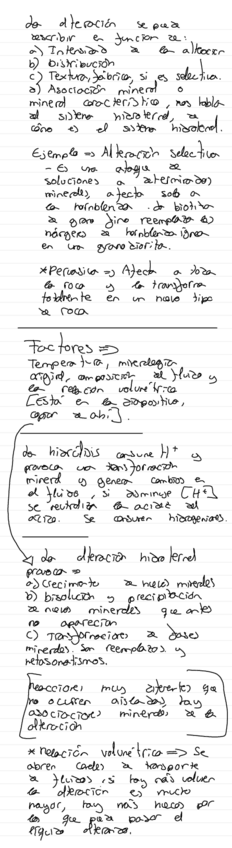 La alteración se puede
describir en función de:
a) Intensidad de la alteración
b) Distribución
c) Textura, fábrica, si es selectiva.
d) Asociación mineral o
mineral característico, nos habla
del sistema hidrotermal, de
cómo es el sistema hidrotermal.
Ejemplo => Alteración selectiva
- Es un ataque de
soluciones a determinados
minerales, afecta solo a
la hornblenda. La biotita
de grano fino reemplaza los
márgenes de hornblenda ígnea
en una granodiorita.
* Pervasiva => Afecta a toda
la roca y la transforma
totalmente en un nuevo tipo
de roca
Factores =>
Temperatura, mineralogía
original, composición del fluido y
la relación volumétrica
[Está en la diapositiva,
copiar de ahí].
La hidrólisis consume H+ y
provoca una transformación
mineral y genera cambios en
el fluido, si disminuye [H+]
se neutraliza la acidez del
ácido. Se consumen hidrogeniones.
La alteración hidrotermal
provoca =>
a) Crecimiento de nuevos minerales
b) Disolución y precipitación
de nuevos minerales que antes
no aparecían
c) Transformaciones de fases
minerales. Son reemplazos y
metasomatismos.
Reacciones muy diferentes que
no ocurren aisladas, hay
asociaciones minerales de la
alteración
* Relación volumétrica => Se
abren canales de transporte
de fluidos, si hay más volumen
la alteración es mucho
mayor, hay más huecos por
los que puede pasar el
líquido